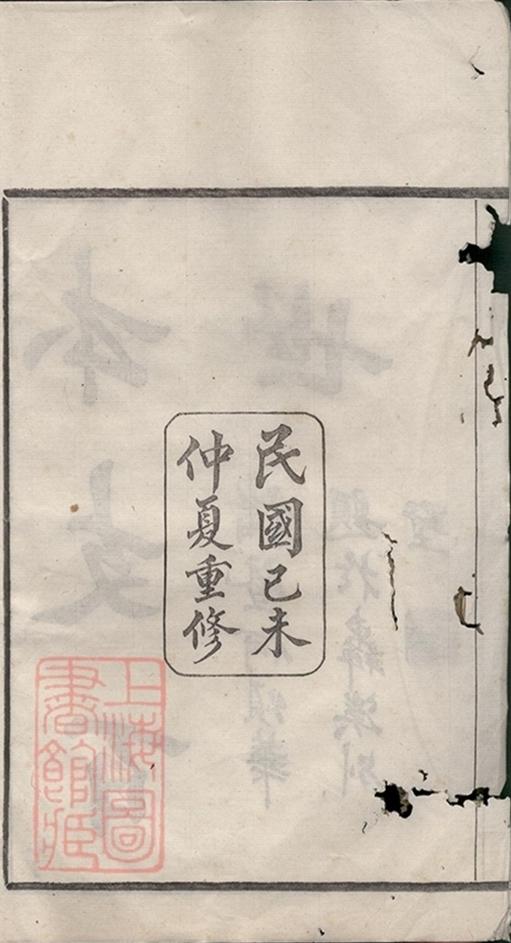 民國己未
仲夏重修
上海圖
書館藏